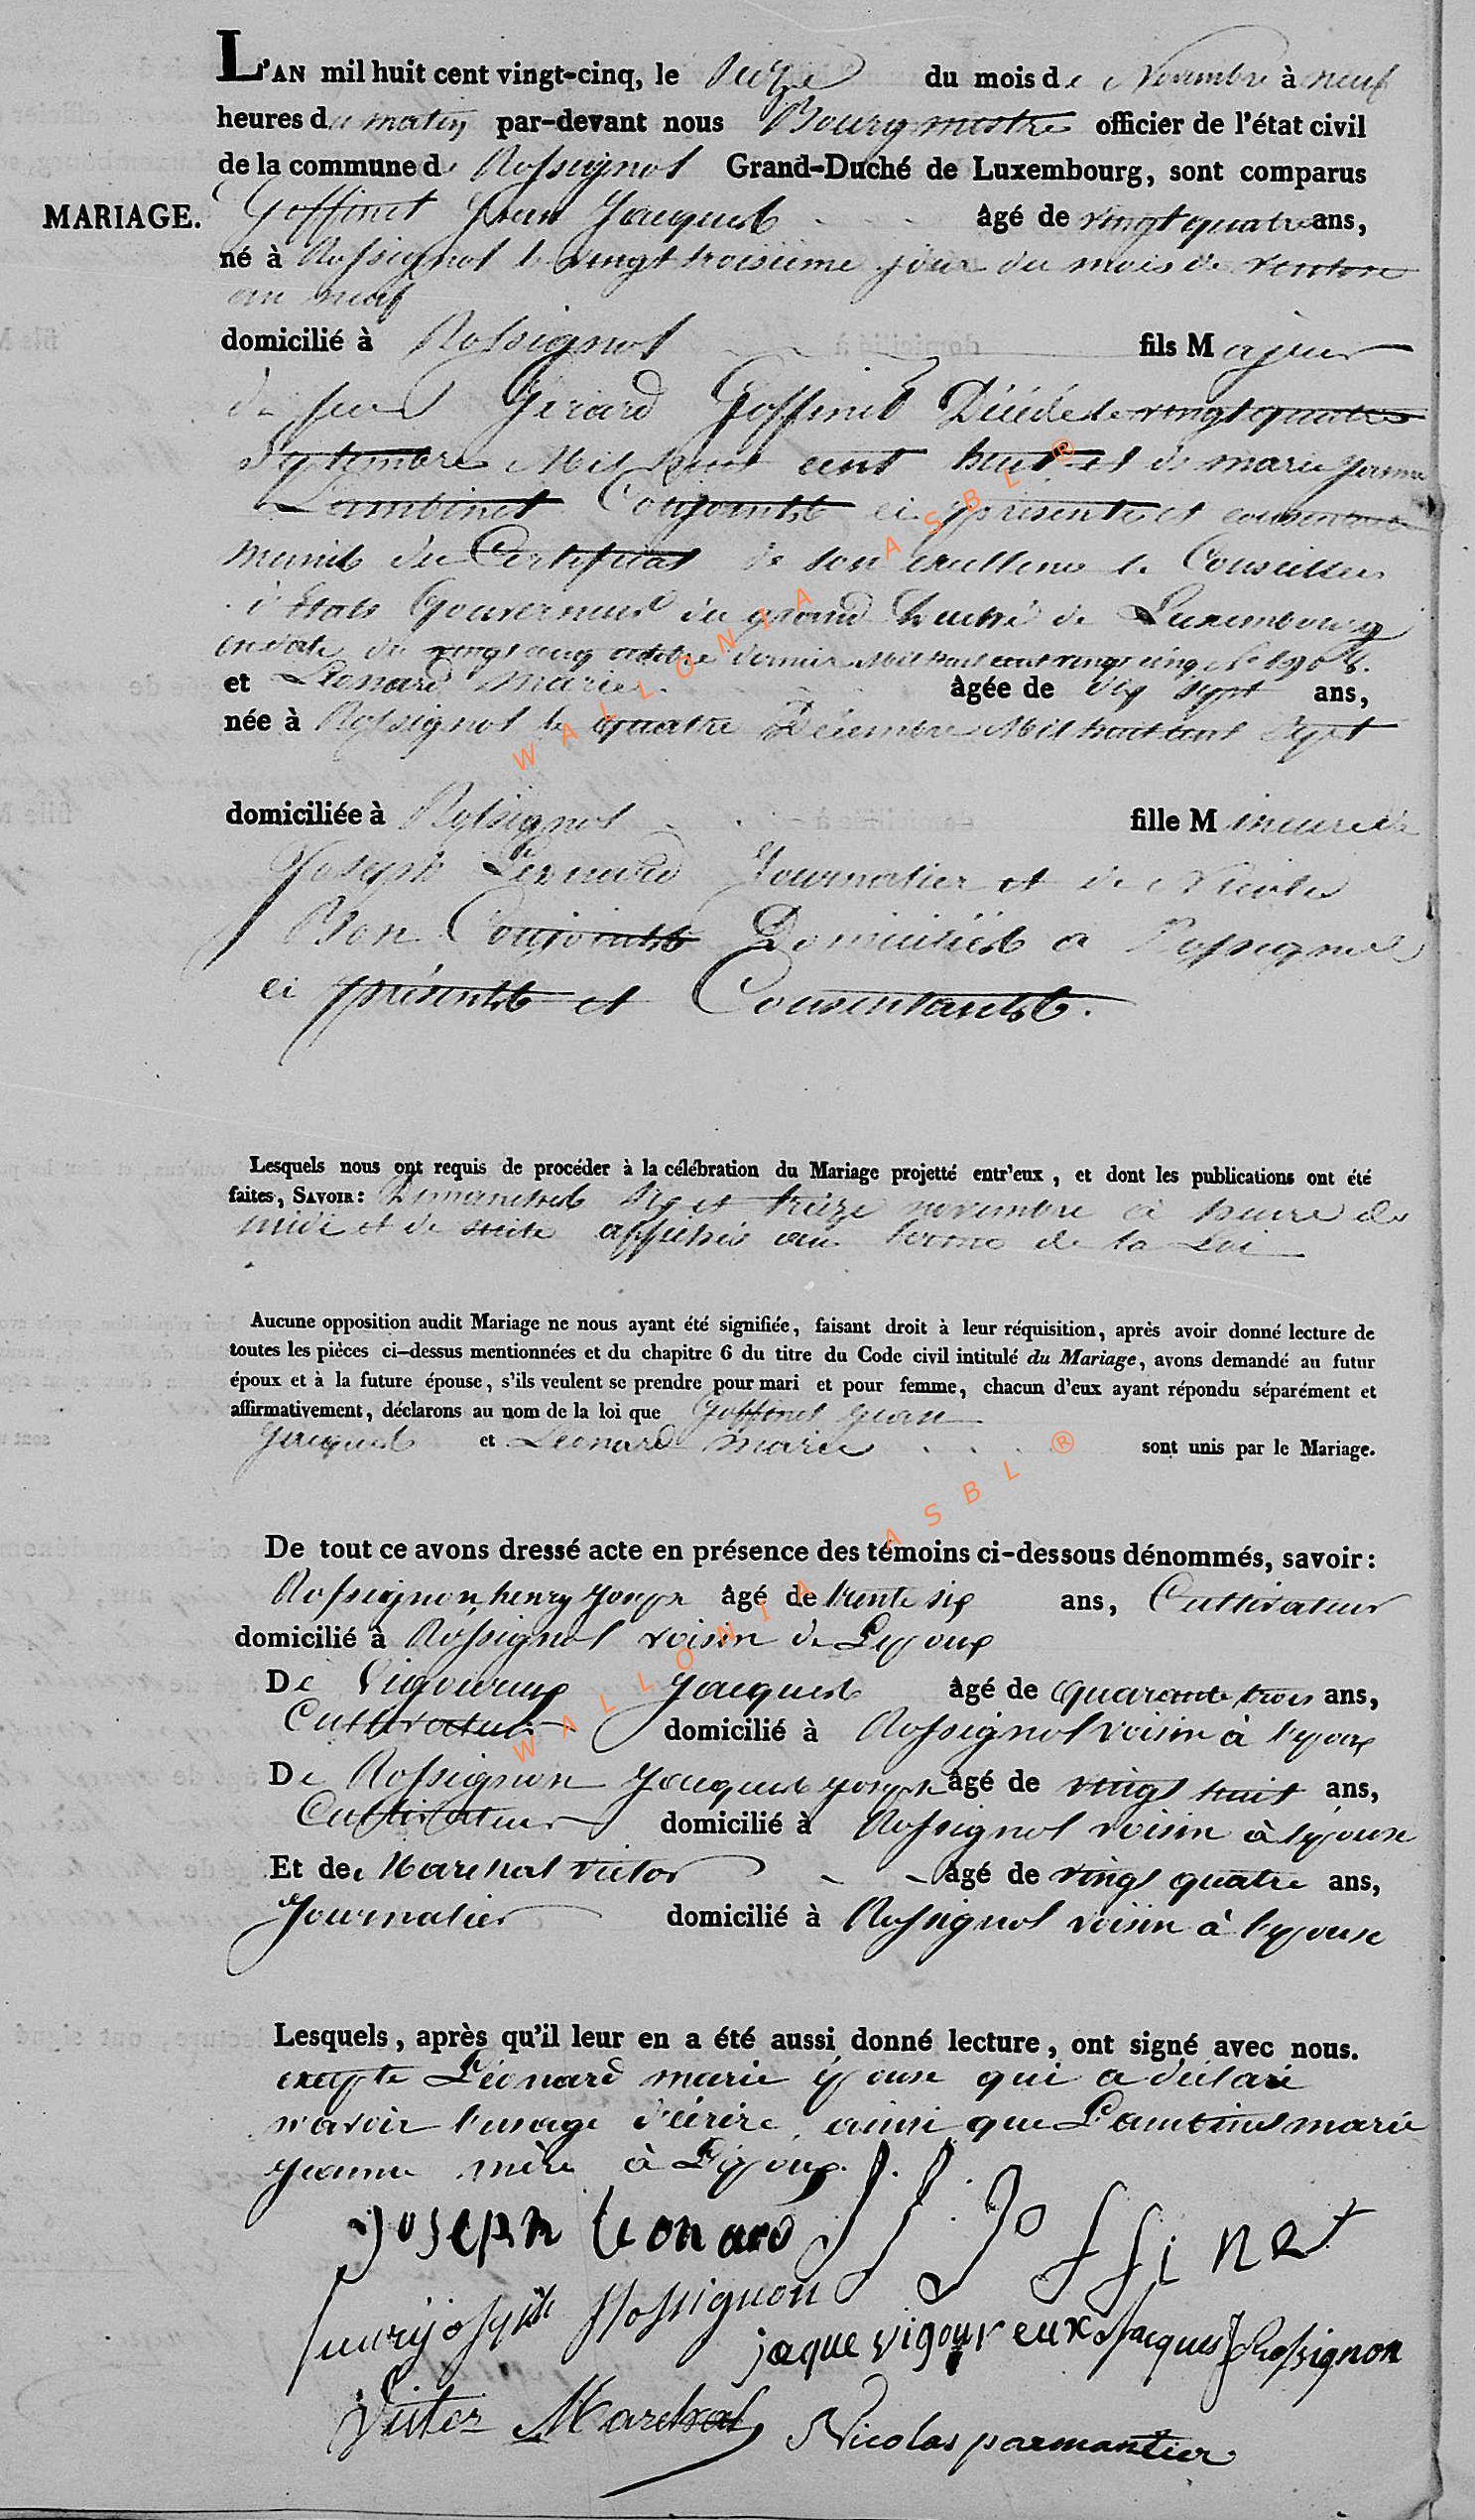 L'AN mil huit cent vingt-cinq, le du mois de Novembre à neuf
heures du matin par-devant nous Bourgmestre officier de l'état civil
de la commune de Rossignol Grand-Duché de Luxembourg, sont comparus
MARIAGE. Goffinet Jean Jacques âgé de vingt quatre ans,
né à Rossignol le vingt troisieme jour du mois de ventose
an neuf
domicilié à Rossignol fils Majeur
de feu Gérard Goffinet Décédé le vingt quatre
Septembre Mil huit cent huit et de marie jeanne
Lambinet Conjoints ci présente et consentante
munit du Certificat de son excellence le Conseiller
d'Etats Gouverneur du grand Duché de Luxembourg
en date du vingt cinq octobre dernier Mil huit cent vingt cinq
et Léonard Marie âgée de dix sept ans,
née à Rossignol le quatre Décembre Mil huit cent sept
domiciliée à Rossignol fille Mineure de
Joseph Léonard Journalier et de Nicole
Bon Conjoints Domiciliés a Rossignol
ci présents et Consentants.
Lesquels nous ont requis de procéder à la célébration du Mariage projetté entr'eux, et dont les publications ont été
faites, SAVOIR : Dimanches six et treize novembre à heure de
midi et de suite affichés au terme de la Loi
Aucune opposition audit Mariage ne nous ayant été signifiée, faisant droit à leur réquisition, après avoir donné lecture de
toutes les pièces ci-dessus mentionnées et du chapitre 6 du titre du Code civil intitulé du Mariage, avons demandé au futur
époux et à la future épouse, s'ils veulent se prendre pour mari et pour femme, chacun d'eux ayant répondu séparément et
affirmativement, déclarons au nom de la loi que Goffinet Jean
Jacques et Léonard Marie sont unis par le Mariage.
De tout ce avons dressé acte en présence des témoins ci-dessous dénommés, savoir :
Rossignon henry Joseph âgé de trente six ans, Cultivateur
domicilié à Rossignol voisin de L'epoux
De Vigoureux Jacques âgé de quarante trois ans,
Cultivateur domicilié à Rossignol voisin à l'epoux
De Rossignon Jacques Joseph âgé de vingt huit ans,
Cultivateur domicilié à Rossignol voisin à l'epouse
Et de Marchal Victor âgé de vingt quatre ans,
Journalier domicilié à Rossignol voisin à l'epouse
Lesquels, après qu'il leur en a été aussi donné lecture, ont signé avec nous.
excepte Léonard marie épouse qui a déclaré
n'avoir l'usage d'écrire, ainsi que Lambinet marie
jeanne mère à L'époux.
joseph leonard J. J. Goffinet
henry joseph Rossignon
jaque vigoureux Jacques J Rossignon
Victor Marchal Nicolas parmantier
WALLONIA ASBL ®
WALLONIA ASBL ®